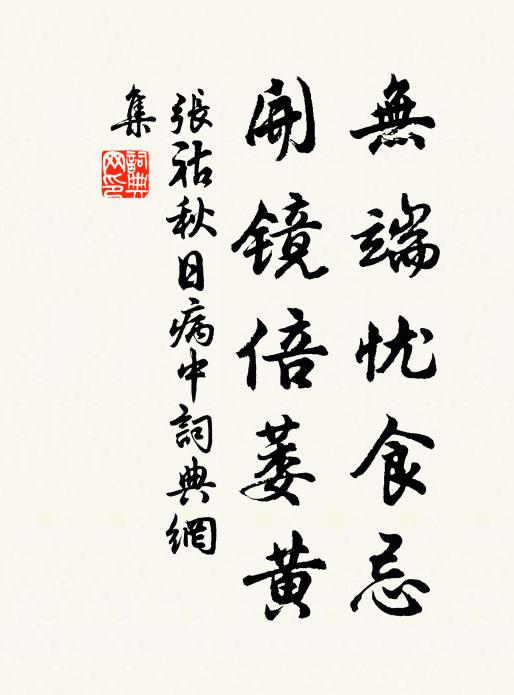 無端忧食忌
開鏡倍萎黄
張祜秋日病中詞典網
集
詞典
网印